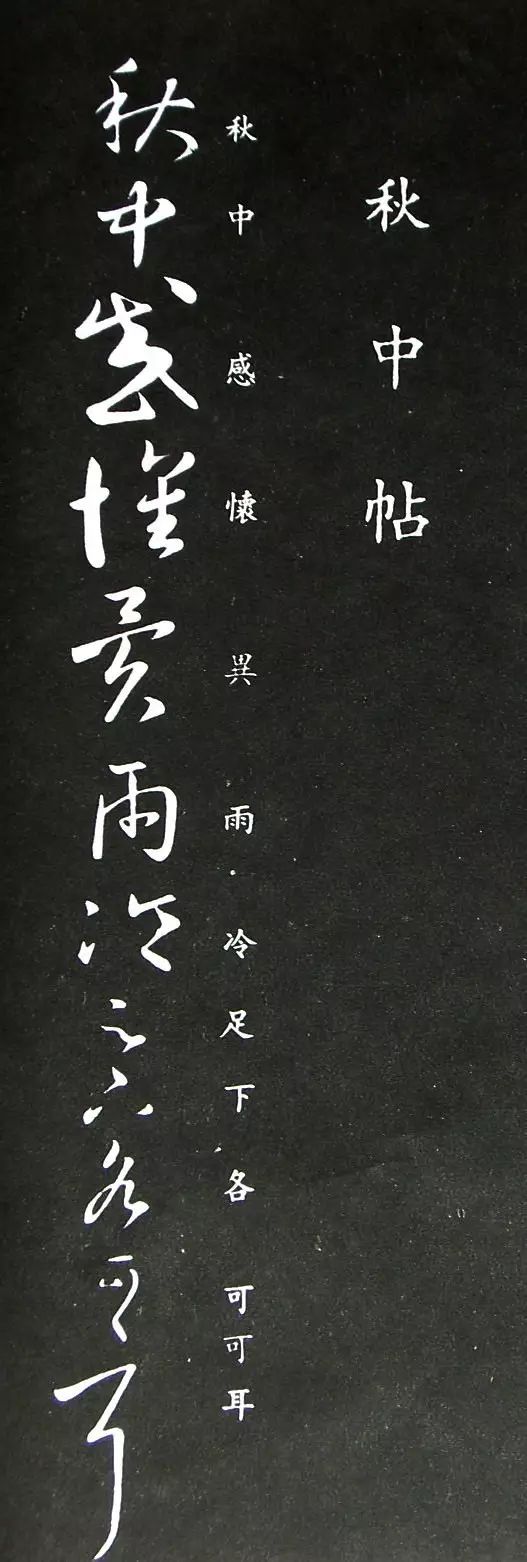 秋中帖
秋中感懷異雨冷足下各可可耳
秋中感懷異雨冷足下各可可耳